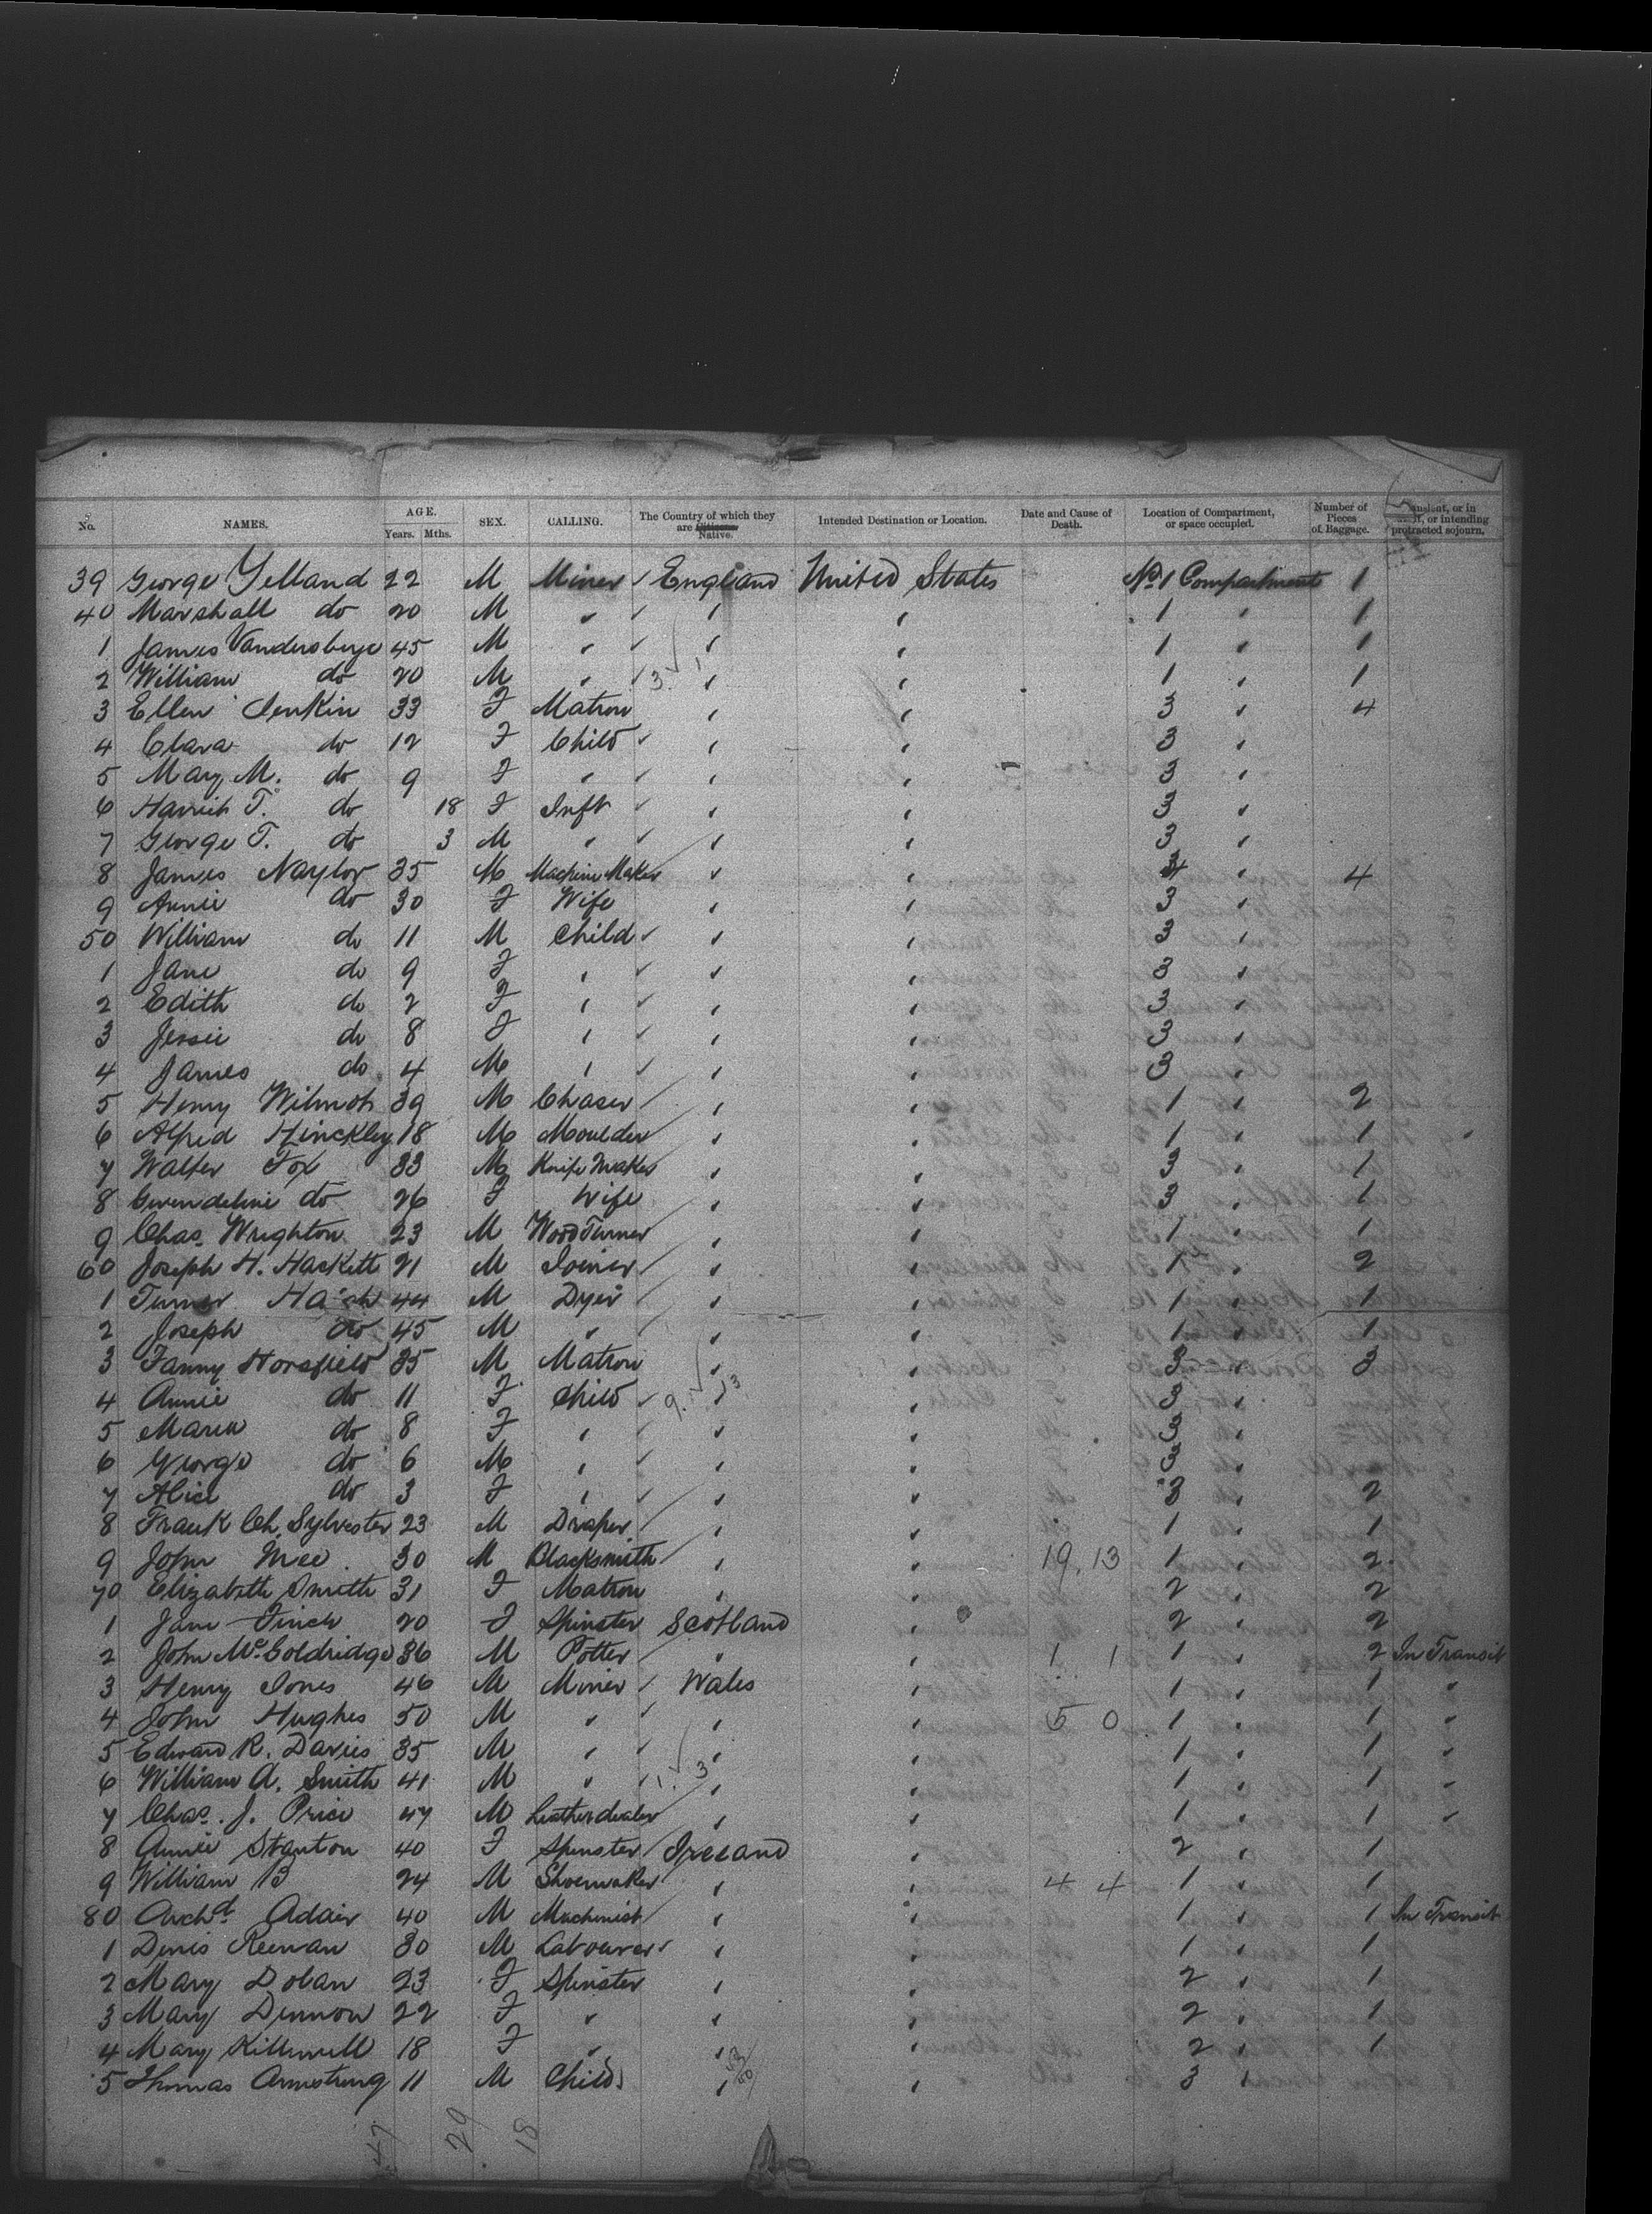 No. NAMES. AGE. Years. Mths. SEX. CALLING. The Country of which they are Citizens Native. Intended Destination or Location. Date and Cause of Death. Location of Compartment, or space occupied. Number of Pieces of Baggage. or in or intending protracted sojourn.
39 George Yelland 22 M Miner England United States No. 1 Compartment 1
40 Marshall do 20 M " " " 1 " 1
1 James Vandersluys 45 M " " " 1 " 1
2 William do 20 M " 3 " " 1 " 1
3 Ellen Jenkin 33 F Matron " " 3 " 4
4 Clara do 12 F Child " " 3 "
5 Mary M. do 9 F " " " 3 "
6 T. do 18 F Inft " " 3 "
7 George T. do 3 M " " " 3 "
8 James Naylor 35 M Machine Maker " " 3 " 4
9 Annie do 30 F Wife " " 3 "
50 William do 11 M Child " " 3 "
1 Jane do 9 F " " " 3 "
2 Edith do 2 F " " " 3 "
3 Jessie do 8 F " " " 3 "
4 James do 4 M " " " 3 "
5 Henry Wilmot 39 M Chaser " " 1 " 2
6 Alfred Hinckley 18 M Moulder " " 1 " 1
7 Walter Fox 33 M Knife Maker " " 3 " 1
8 Gwendeline do 26 F Wife " " 3 " 1
9 Chas. Wrighton 23 M Wood Turner " " 1 " 1
60 Joseph H. Hackett 21 M Joiner " " 1 " 2
1 Turner 44 M Dyer " " 1 " 1
2 Joseph do 45 M " " " 1 " 1
3 Fanny Horsfield 35 M Matron " " 3 " 3
4 Annie do 11 F Child 9 " 3 " 3 "
5 Maria do 8 F " " " 3 "
6 George do 6 M " " " 3 "
7 Alice do 3 F " " " 3 " 2
8 Frank Ch. Sylvester 23 M Draper " " 1 " 1
9 John Mee 30 M Blacksmith " " 19. 13 1 " 2
70 Elizabeth Smith 31 F Matron " " 2 " 2
1 Jane Finch 20 F Spinster Scotland " 2 " 2
2 John McGoldridge 36 M Potter " " 1 1 1 " 2 In Transit
3 Henry Jones 46 M Miner Wales " 1 " 1 "
4 John Hughes 50 M " " " 5 0 1 " 1 "
5 Edward R. Davies 35 M " " " 1 " 1 "
6 William A. Smith 41 M " 1 3 " " 1 " 1 "
7 Chas. J. Price 47 M Leather dealer " " 1 " 1 "
8 Annie Stanton 40 F Spinster Ireland " 2 " 1
9 William B 24 M Shoemaker " " 4 4 1 " 1
80 Archd. Adair 40 M Machinist " " 1 " 1 In Transit
1 Denis Keenan 30 M Labourer " " 1 " 1
2 Mary Dolan 23 F Spinster " " 2 " 1
3 Mary 22 F " " " 2 " 1
4 Mary 18 F " " " 2 " 1
5 Thomas Armstrong 11 M Child " " 3 "
47 29 18